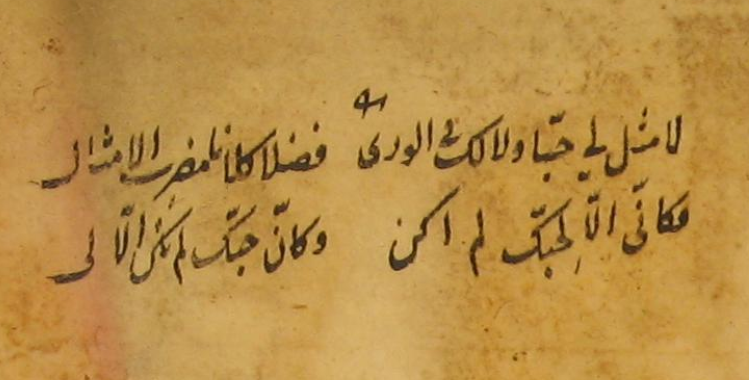 لا مثل لي حبّا ولا لك في الورى فضلا كلانا مضرب الامثال
فكانّي الّا لحبّك لم اكن وكانّ حبّك لم يكن الّا لي